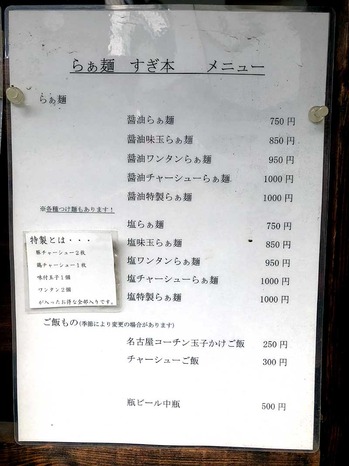 らぁ麺　すぎ本　　メニュー
らぁ麺
醤油らぁ麺　750 円
醤油味玉らぁ麺　850 円
醤油ワンタンらぁ麺　950 円
醤油チャーシューらぁ麺　1000 円
醤油特製らぁ麺　1000 円
※各種つけ麺もあります！
塩らぁ麺　750 円
塩味玉らぁ麺　850 円
塩ワンタンらぁ麺　950 円
塩チャーシューらぁ麺　1000 円
塩特製らぁ麺　1000 円
特製とは・・・
豚チャーシュー２枚
鶏チャーシュー１枚
味付玉子１個
ワンタン２個
が入ったお得な全部入りです。
ご飯もの(季節により変更の場合があります)
名古屋コーチン玉子かけご飯　250 円
チャーシューご飯　300 円
瓶ビール中瓶　500 円